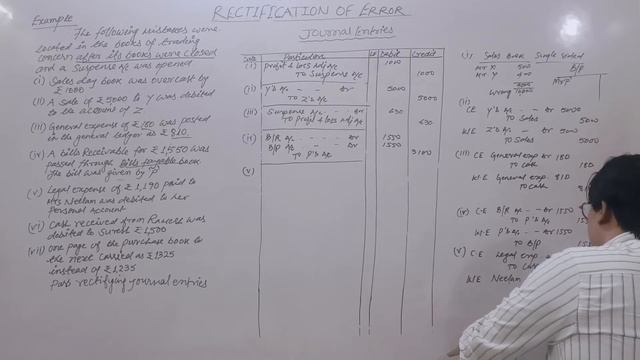 RECTIFICATION OF ERROR
Example
The following mistakes were
located in the books of trading
concern after its books were closed
and a Suspense a/c was opened
(i) Sales day book was overcast by
₹1000
(ii) A sale of ₹5000 to Y was debited
to the account of Z
(iii) General expense of ₹180 was posted
in the general ledger as ₹810.
(iv) A bills Receivable for ₹1,550 was
passed through bills payable book
The bill was given by 'P'
(v) Legal expense of ₹1,190 paid to
Mrs Neelam was debited to her
Personal account
(vi) Cash received from Ramesh was
debited to Suresh ₹1,500
(vii) one page of the purchase book to
the next carried as ₹1325
instead of ₹1,235
Pass rectifying journal entries
Journal Entries
Date Particulars LF Debit Credit
(i) Profit & loss Adj A/c 1000
To Suspense a/c 1000
(ii) Y's A/c - - Dr 5000
To Z's A/c 5000
(iii) Suspense A/c - - Dr 630
To Profit & loss Adj A/c 630
(iv) B/R A/c - - Dr 1550
B/P A/c - - Dr 1550
To P's A/c 3100
(v)
(i) Sales Book
Mr X 500
Mr Y
Wrong
(ii) CE Y's A/c - Dr 5000
To Sales 5000
W.E Z's A/c - Dr 5000
To Sales 5000
(iii) CE General exp Dr 180
To Cash 180
W.E General exp. 810
To Cash
(iv) C.E B/R A/c - - Dr 1550
To P's A/c
W.E P's A/c - - Dr 1550
To B/P
(v) C.E Legal exp
To
W.E Neelam